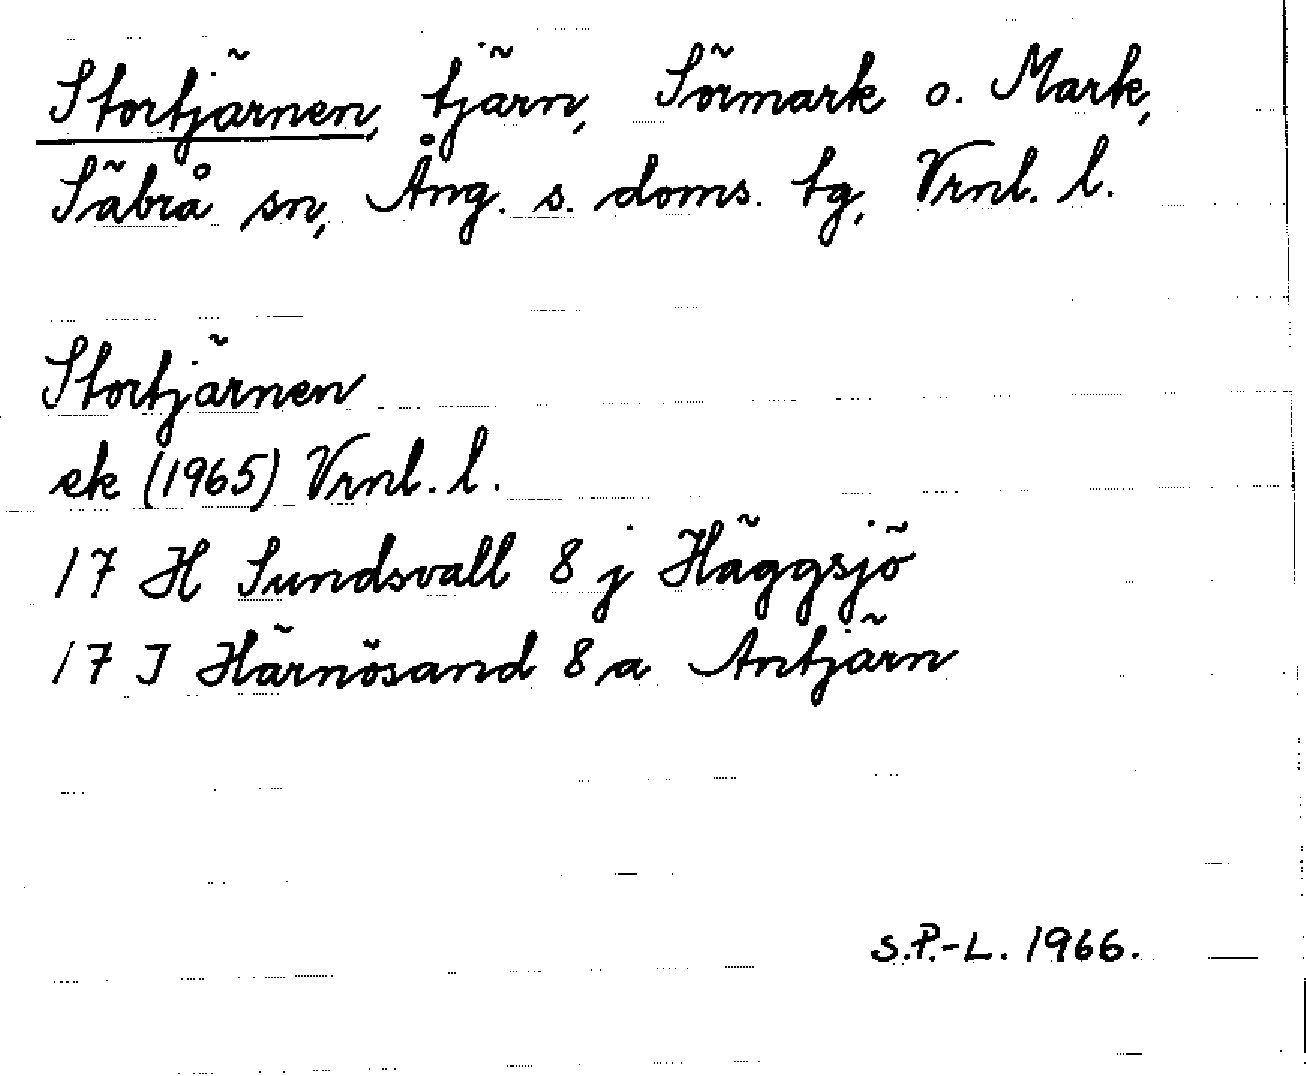 Stortjärnen, tjärn, Sörmark o. Mark,
Säbrå sn, Ång. s. doms. tg, Vrnl. l.
Stortjärnen
ek (1965) Vrnl. l.
17 H Sundsvall 8 j Häggsjö
17 I Härnösand 8 a Antjärn
S.P.-L. 1966.